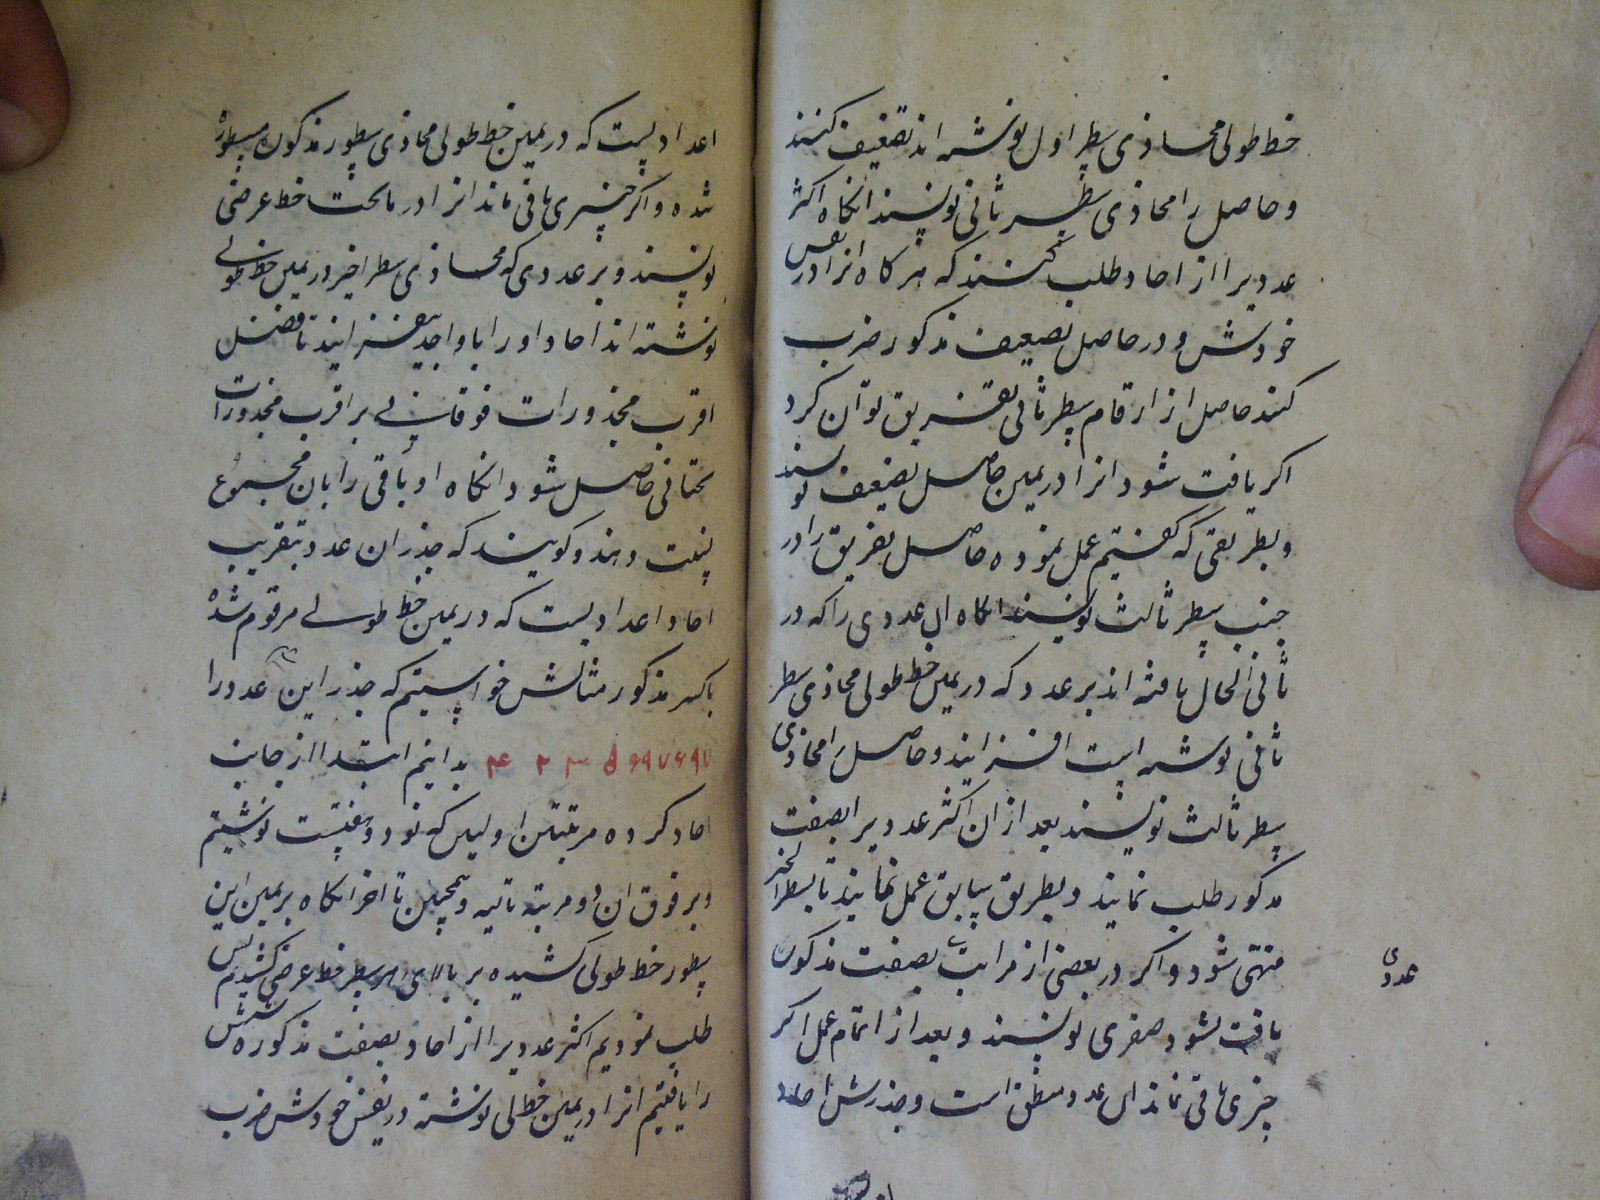 خط طولی محاذی سطر اول نوشته اند تضعیف کنند
و حاصل را محاذی سطر ثانی نویسند انکاه اکثر
عددیرا از احاد طلب کنند که هر کاه انرا در نفس
خودش و در حاصل تضعیف مذکور ضرب
کنند حاصل از ارقام سطر ثانی تفریق توان کرد
اکر یافت شود انرا در یمین حاصل تضعیف نویسند
و بطریقی که کفتیم عمل نموده حاصل تفریق را در
جنب سطر ثالث نویسند انکاه ان عددی را که در
ثانی الحال یافته اند بر عدد که در یمین خط طولی محاذی سطر
ثانی نوشته است افزایند و حاصل را محاذی
سطر ثالث نویسند بعد از ان اکثر عددیرا بصفت
مذکور طلب نمایند و بطریق سابق عمل نمایند تا بسطر اخیر
منتهی شود و اکر در بعضی از مراتب بصفت مذکور
عددی
یافت نشود صفری نویسند و بعد از اتمام عمل اکر
چیزی باقی نماند ان عدد منطق است و جذرش احاد
اعدادیست که در یمین خط طولی محاذی سطور مذکوره مسطور
شده و اکر چیزی باقی ماند انرا در ماتحت خط عرضی
نویسند و بر عددی که محاذی سطر اخیر در یمین خط طولی
نوشته اند احاد او را با واحد بیفزایند تا فضل
اقرب مجذورات فوقانی بر اقرب مجذورات
تحتانی حاصل شود انکاه او باقی را بان مجموع
نسبت دهند و کویند که جذر ان عدد بتقریب
احاد اعدادیست که در یمین خط طولی مرقوم شده
با کسر مذکور مثالش خواستیم که جذر این عدد را
بدانیم ابتدا از جانب
احاد کرده مرتبتین اولیین که نود و هفتست نوشتیم
و بر فوق ان دو مرتبه ثانیه و همچنین تا اخر انکاه بر یمین این
سطور خط طولی کشیده بر بالای هر سطر خط عرضی کشیدیم پس
طلب نمودیم اکثر عددیرا از احاد بصفت مذکوره شش
را یافتیم انرا در یمین خط طولی نوشته در نفس خودش ضرب